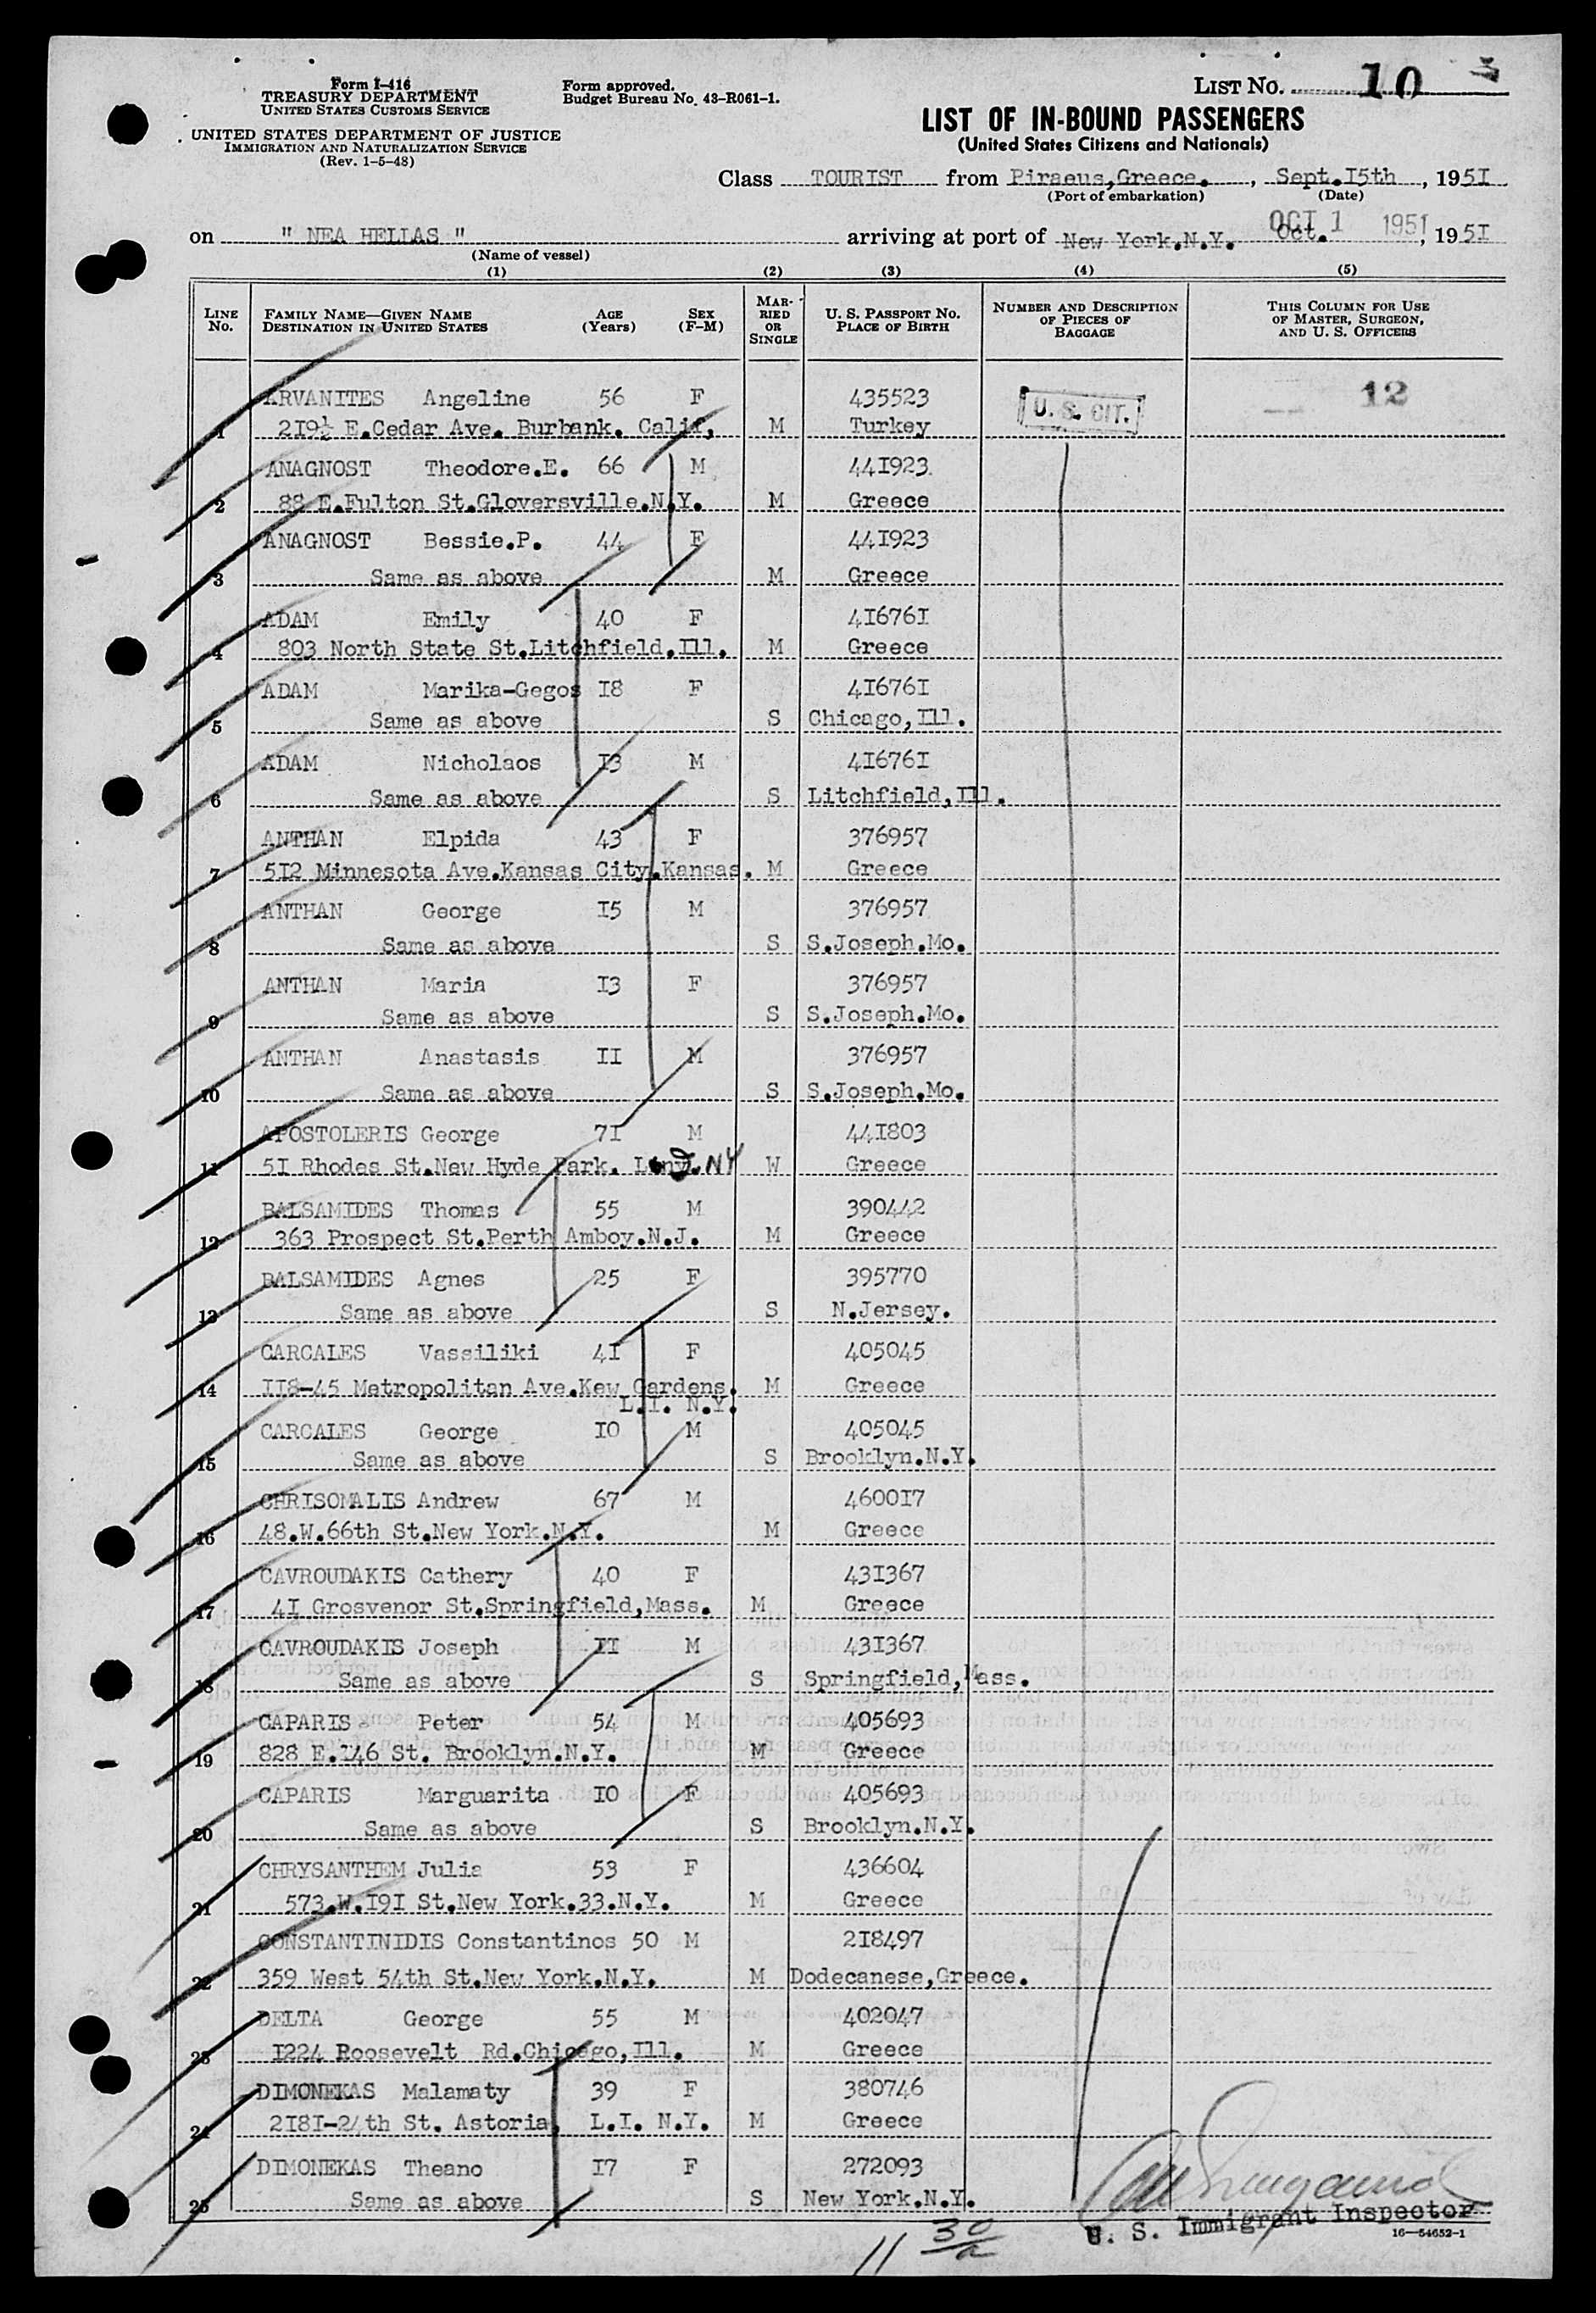 Form I-416
TREASURY DEPARTMENT
UNITED STATES CUSTOMS SERVICE
UNITED STATES DEPARTMENT OF JUSTICE
IMMIGRATION AND NATURALIZATION SERVICE
(Rev. 1-5-48)
Form approved.
Budget Bureau No. 43-R061-1.
LIST No. 10 3
LIST OF IN-BOUND PASSENGERS
(United States Citizens and Nationals)
Class TOURIST from Piraeus,Greece. , Sept.I5th , 195I
(Port of embarkation) (Date)
OCT 1 1951
on " NEA HELLAS " arriving at port of New York.N.Y. Oct. , 195I
(Name of vessel)
(1) (2) (3) (4) (5)
LINE No. FAMILY NAME—GIVEN NAME DESTINATION IN UNITED STATES AGE (Years) SEX (F-M) MARRIED OR SINGLE U. S. PASSPORT No. PLACE OF BIRTH NUMBER AND DESCRIPTION OF PIECES OF BAGGAGE THIS COLUMN FOR USE OF MASTER, SURGEON, AND U. S. OFFICERS
ARVANITES Angeline 56 F 435523 U. S. CIT. 12
1 2I9½ E.Cedar Ave. Burbank. Calif, M Turkey
ANAGNOST Theodore.E. 66 M 44I923.
2 88 E.Fulton St.Gloversville.N.Y. M Greece
ANAGNOST Bessie.P. 44 F 44I923
3 Same as above M Greece
ADAM Emily 40 F 4I676I
4 803 North State St.Litchfield.Ill. M Greece
ADAM Marika-Gegos I8 F 4I676I
5 Same as above S Chicago,Ill.
ADAM Nicholaos I3 M 4I676I
6 Same as above S Litchfield,Ill.
ANTHAN Elpida 43 F 376957
7 5I2 Minnesota Ave.Kansas City.Kansas. M Greece
ANTHAN George I5 M 376957
8 Same as above S S.Joseph.Mo.
ANTHAN Maria I3 F 376957
9 Same as above S S.Joseph.Mo.
ANTHAN Anastasis II M 376957
10 Same as above S S.Joseph.Mo.
APOSTOLERIS George 7I M 44I803
11 5I Rhodes St.New Hyde Park. L.I. NY W Greece
BALSAMIDES Thomas 55 M 390442
12 363 Prospect St.Perth Amboy.N.J. M Greece
BALSAMIDES Agnes 25 F 395770
13 Same as above S N.Jersey.
CARCALES Vassiliki 4I F 405045
14 II8-45 Metropolitan Ave.Kew Gardens. M Greece
L.I. N.Y.
CARCALES George I0 M 405045
15 Same as above S Brooklyn.N.Y.
CHRISOMALIS Andrew 67 M 4600I7
16 48.W.66th St.New York.N.Y. M Greece
CAVROUDAKIS Cathery 40 F 43I367
17 4I Grosvenor St.Springfield,Mass. M Greece
CAVROUDAKIS Joseph II M 43I367
18 Same as above S Springfield,Mass.
CAPARIS Peter 54 M 405693
19 828 E.I46 St. Brooklyn.N.Y. M Greece
CAPARIS Marguarita I0 F 405693
20 Same as above S Brooklyn.N.Y.
CHRYSANTHEM Julia 53 F 436604
21 573.W.I9I St.New York.33.N.Y. M Greece
CONSTANTINIDIS Constantinos 50 M 2I8497
22 359 West 54th St.New York.N.Y. M Dodecanese,Greece.
DELTA George 55 M 402047
23 I224 Roosevelt Rd.Chicago,Ill. M Greece
DIMONEKAS Malamaty 39 F 380746
24 2I8I-24th St. Astoria, L.I. N.Y. M Greece
DIMONEKAS Theano I7 F 272093
25 Same as above S New York.N.Y.
U. S. Immigrant Inspector
16—54652-1
11 30/a